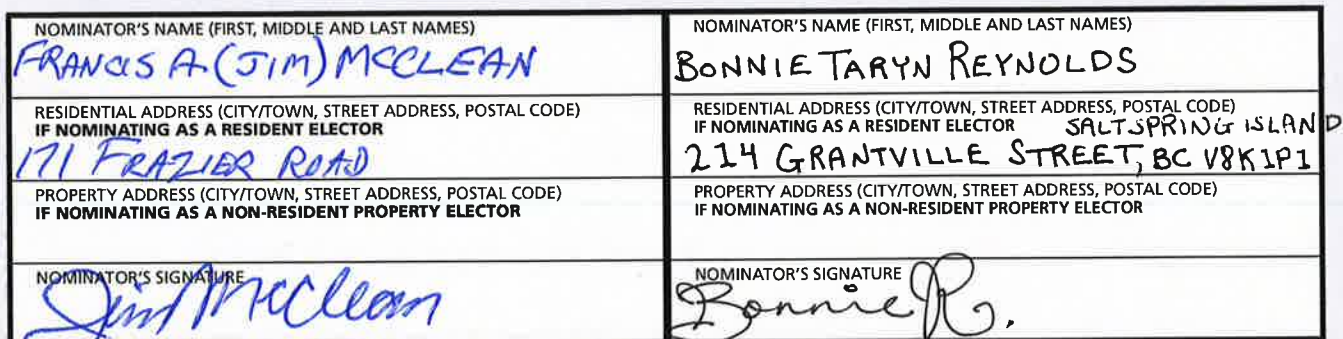 NOMINATOR'S NAME (FIRST, MIDDLE AND LAST NAMES)
FRANCIS A. (JIM) MCCLEAN
RESIDENTIAL ADDRESS (CITY/TOWN, STREET ADDRESS, POSTAL CODE)
IF NOMINATING AS A RESIDENT ELECTOR
171 FRAZIER ROAD
PROPERTY ADDRESS (CITY/TOWN, STREET ADDRESS, POSTAL CODE)
IF NOMINATING AS A NON-RESIDENT PROPERTY ELECTOR
NOMINATOR'S SIGNATURE
Jim McClean
NOMINATOR'S NAME (FIRST, MIDDLE AND LAST NAMES)
BONNIE TARYN REYNOLDS
RESIDENTIAL ADDRESS (CITY/TOWN, STREET ADDRESS, POSTAL CODE)
IF NOMINATING AS A RESIDENT ELECTOR SALTSPRING ISLAND
214 GRANTVILLE STREET, BC V8K1P1
PROPERTY ADDRESS (CITY/TOWN, STREET ADDRESS, POSTAL CODE)
IF NOMINATING AS A NON-RESIDENT PROPERTY ELECTOR
NOMINATOR'S SIGNATURE
Bonnie R.